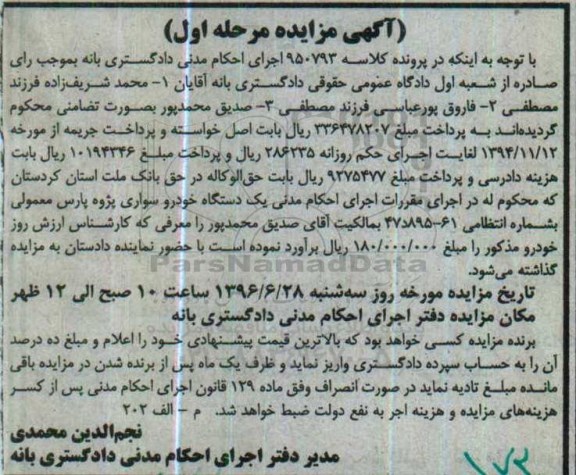 (آگهی مزایده مرحله اول)
با توجه به اینکه در پرونده کلاسه ۹۵۰۷۹۳ اجرای احکام مدنی دادگستری بانه بموجب رای
صادره از شعبه اول دادگاه عمومی حقوقی دادگستری بانه آقایان ۱- محمد شریف‌زاده فرزند
مصطفی ۲- فاروق پورعباسی فرزند مصطفی ۳- صدیق محمدپور بصورت تضامنی محکوم
گردیده‌اند به پرداخت مبلغ ۳۳۶۴۷۸۲۰۷ ریال بابت اصل خواسته و پرداخت جریمه از مورخه
۱۳۹۴/۱۱/۱۲ لغایت اجرای حکم روزانه ۲۸۶۲۳۵ ریال و پرداخت مبلغ ۱۰۱۹۴۳۴۶ ریال بابت
هزینه دادرسی و پرداخت مبلغ ۹۲۷۵۴۷۷ ریال بابت حق‌الوکاله در حق بانک ملت استان کردستان
که محکوم له در اجرای مقررات اجرای احکام مدنی یک دستگاه خودرو سواری پژوه پارس معمولی
بشماره انتظامی ۶۱-۸۹۵د۴۷ بمالکیت آقای صدیق محمدپور را معرفی که کارشناس ارزش روز
خودرو مذکور را مبلغ ۱۸۰/۰۰۰/۰۰۰ ریال برآورد نموده است با حضور نماینده دادستان به مزایده
گذاشته می‌شود.
ParsNamadData
تاریخ مزایده مورخه روز سه‌شنبه ۱۳۹۶/۶/۲۸ ساعت ۱۰ صبح الی ۱۲ ظهر
مکان مزایده دفتر اجرای احکام مدنی دادگستری بانه
برنده مزایده کسی خواهد بود که بالاترین قیمت پیشنهادی خود را اعلام و مبلغ ده درصد
آن را به حساب سپرده دادگستری واریز نماید و ظرف یک ماه پس از برنده شدن در مزایده باقی
مانده مبلغ تادیه نماید در صورت انصراف وفق ماده ۱۲۹ قانون اجرای احکام مدنی پس از کسر
هزینه‌های مزایده و هزینه اجر به نفع دولت ضبط خواهد شد. م - الف ۲۰۲
نجم‌الدین محمدی
مدیر دفتر اجرای احکام مدنی دادگستری بانه